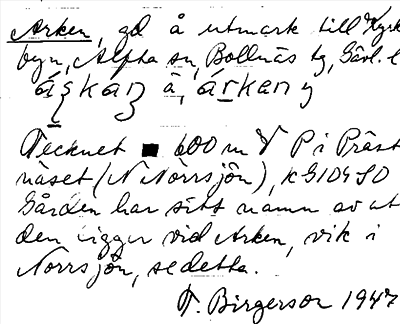 Arken, gd å utmark till Kyrk
byn, Alfta sn, Bollnäs tg, Gävl. l
Tecknet ■ 600 m V P i Präst
näset (N Norrsjön), kG104 SO
Gården har sitt namn av at
den ligger vid Arken, vik i
Norrsjön, se detta.
T. Birgerson 1947